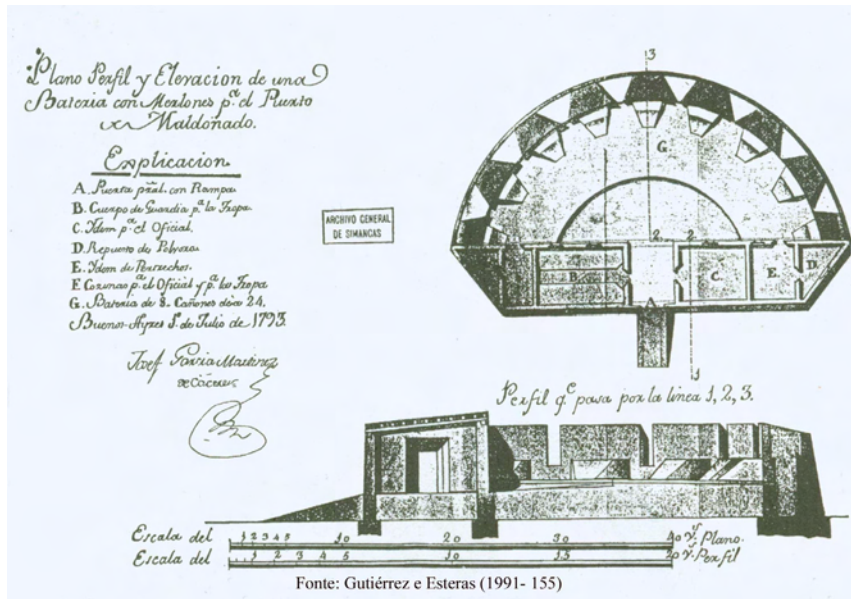 Plano Perfil y Elevacion de una
Bateria con Merlones pª. el Puerto
de Maldonado.
Explicacion
A. Puerta pral. con Rampa
B. Cuerpo de Guardia pª. la Tropa
C. Ydem pª. el Oficial.
D. Repuesto de Polvora
E. Ydem de Pertrechos.
F. Cozinas pª. el Oficial y pª. la Tropa
G. Bateria de 8. Cañones de a 24.
Buenos-Ayres 1º. de Julio de 1793.
Josef Garcia Martinez
de Cáceres
ARCHIVO GENERAL
DE SIMANCAS
3
G
2 2
B C E D
A
1
Perfil q.e pasa por la linea 1, 2, 3.
Escala del 1 2 3 4 5 10 20 30 40 v.s Plano.
Escala del 1 2 3 4 5 10 15 20 v.s Perfil
Fonte: Gutiérrez e Esteras (1991- 155)